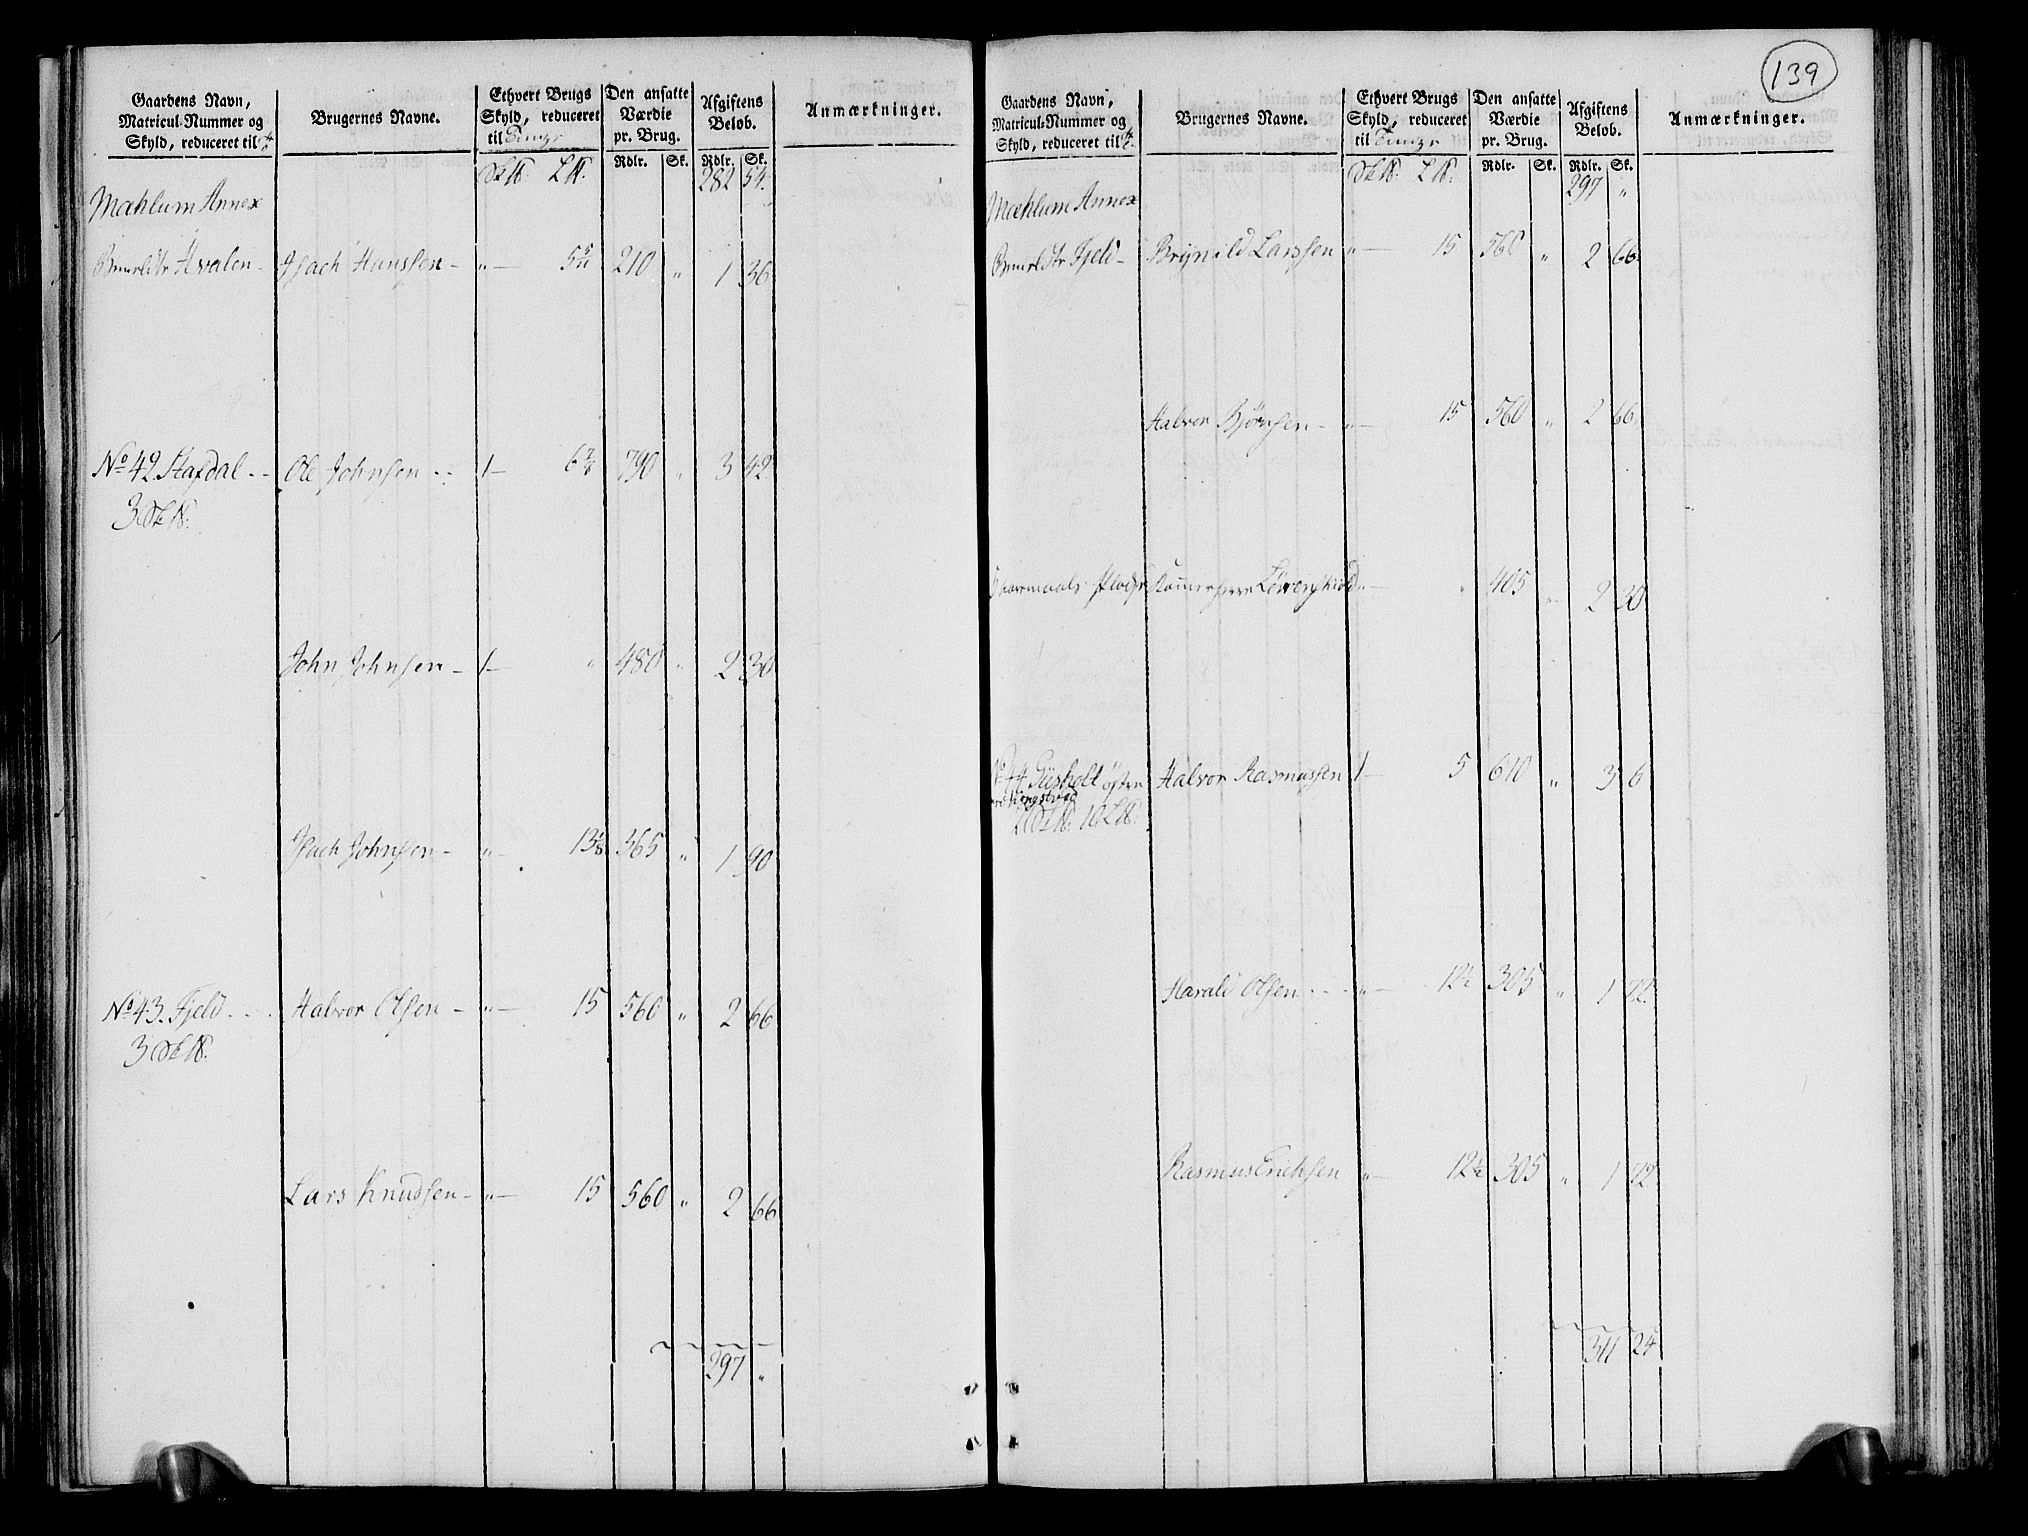 139
Gaardens Navn, Matricul-Nummer og Skyld, reduceret til
Brugernes Navne.
Ethvert Brugs Skyld, reduceret til Tunge
Den ansatte Værdie pr. Brug.
Afgiftens Beløb.
Anmærkninger.
Rdlr. Sk. Rdlr. Sk.
282 54.
Mæhlum Annex
Hvalen - Isach Hanssen - " - 5 210 " 1 36
No 42. Stafdal - - Ole Johnsen - - 1 - 6 7/8 790 " 3 42
3
John Johnsen - 1 - " 480 " 2 30
Isach Johnsen - " - 13 1/8 365 " 1 90
No 43. Fjeld - - - Halvor Olsen - " - 15 560 " 2 66
3
Lars Knudsen - " - 15 560 " 2 66
297 "
Gaardens Navn, Matricul-Nummer og Skyld, reduceret til
Brugernes Navne.
Ethvert Brugs Skyld, reduceret til Tunge
Den ansatte Værdie pr. Brug.
Afgiftens Beløb.
Anmærkninger.
Rdlr. Sk. Rdlr. Sk.
297 "
Mæhlum Annex
Fjeld - Brynild Larssen " - 15 560 " 2 66
Halvor Bjørnsen - " - 15 560 " 2 66
Løvenskiold " - " 405 " 2 20
No 44 Giisholt østre Halvor Rasmussen 1 - 5 610 " 3 6
Harald Olsen - - - " - 12 1/2 305 " 1 42
Rasmus Erichsen " - 12 1/2 305 " 1 42
311 24